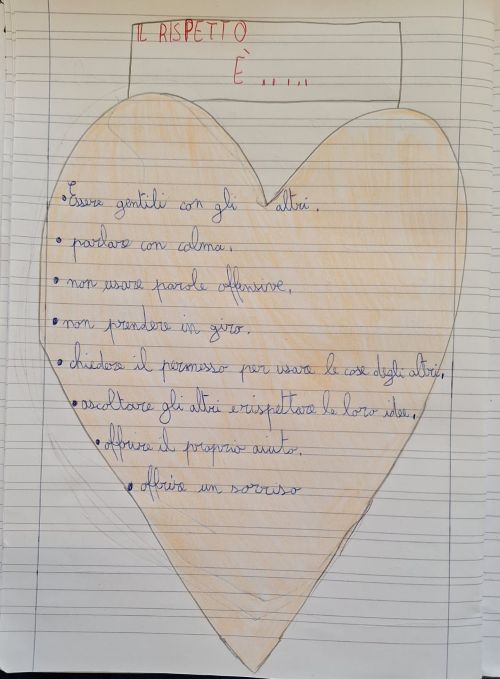 IL RISPETTO
È .....
• Essere gentili con gli altri.
• parlare con calma.
• non usare parole offensive.
• non prendere in giro.
• chiedere il permesso per usare le cose degli altri.
• ascoltare gli altri e rispettare le loro idee.
• offrire il proprio aiuto.
• offrire un sorriso